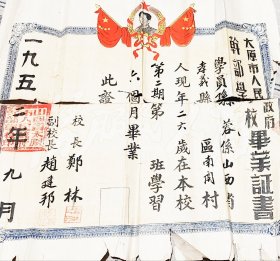 太原市人民政府
幹部學校畢業証書
學員孫
容係山西省
孝義縣
區南閻村
人現年二六歲在本校
第二期第
班學習
六個月畢業
此證
校長鄭林
副校長趙建邦
一九五二年九月